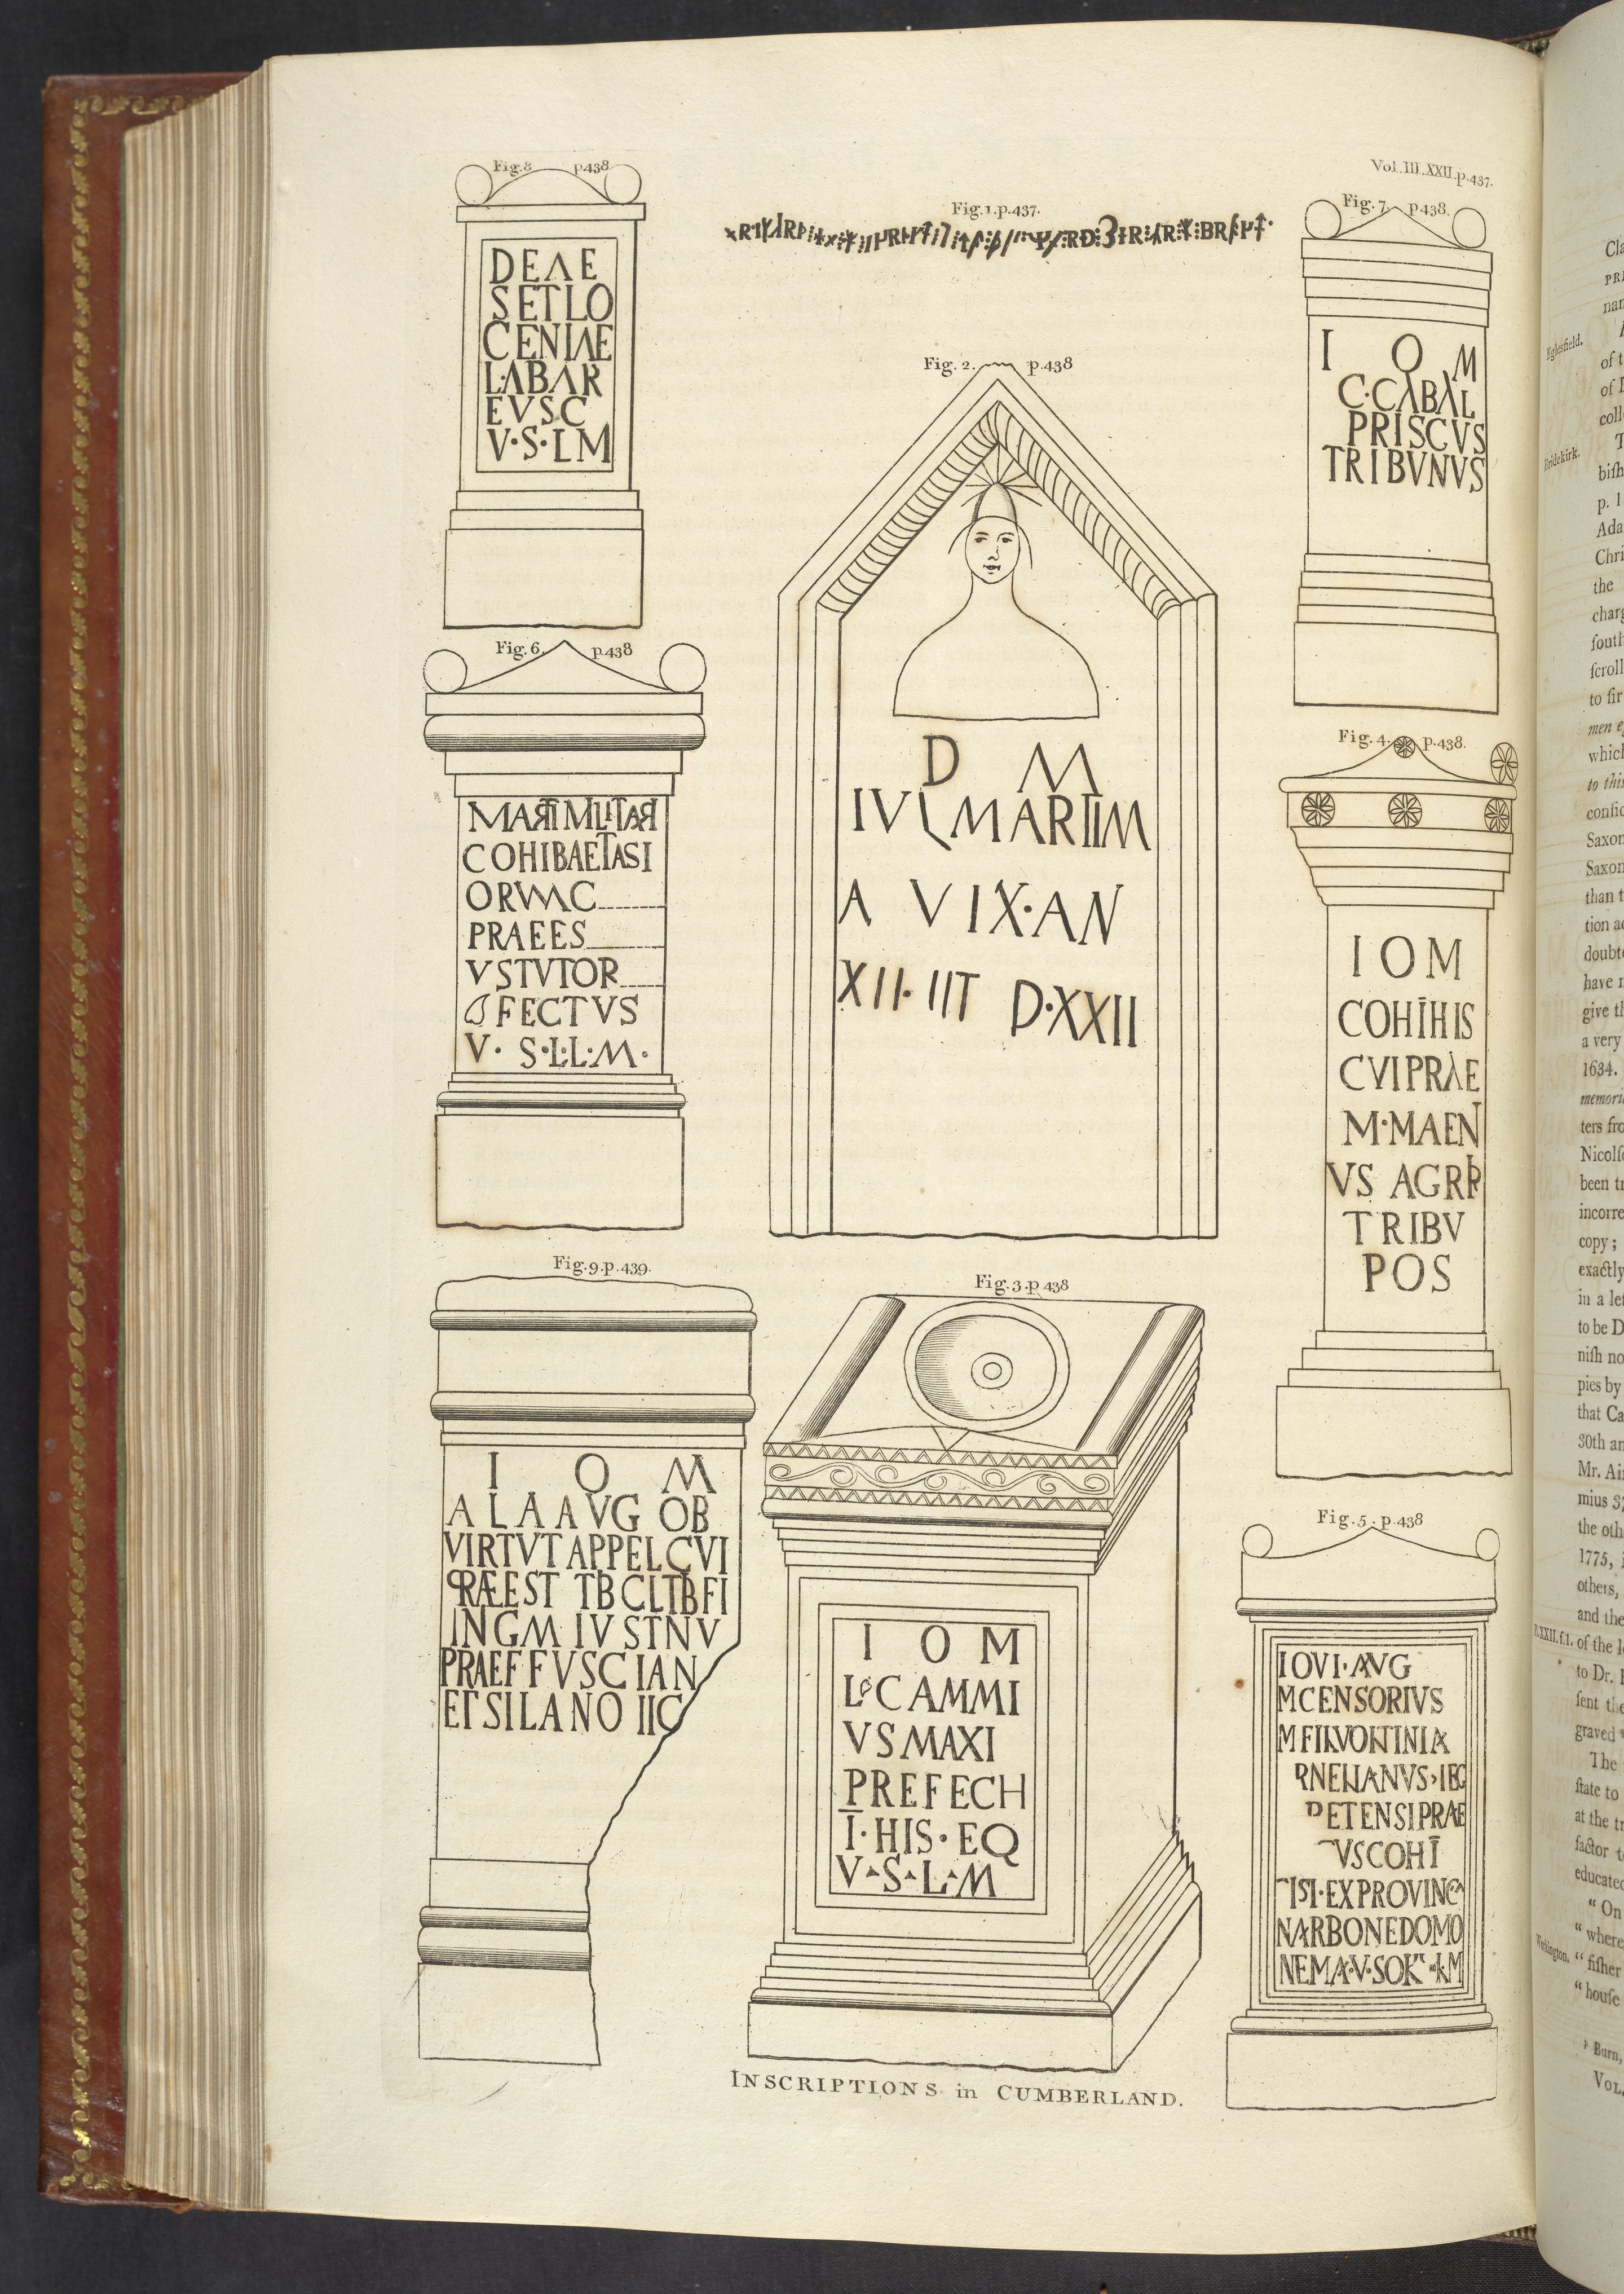 Vol.III.XXII.p.437.
Fig.8 p438
DEAE
SETLO
CENIAE
L·ABAR
EVSC
V·S·LM
Fig.1.p.437.
Fig.7. p438.
I O M
C·CABAL
PRISCVS
TRIBVNVS
Fig.2. p.438
D M
IVLMARTIM
A VIX·AN
XII·IIT D·XXII
Fig.6. p.438
MARTIMILITAR
COHIBAETASI
ORVMC
PRAEES
VSTVTOR
FECTVS
V· S·L·L·M·
Fig.4. p.438.
IOM
COHĪHIS
CVIPRAE
M·MAEN
VS AGRIP
TRIBV
POS
Fig.9.p.439.
I O M
ALAAVG OB
VIRTVTAPPELCVI
PRÆEST TBCLTBFI
INGM IVSTNV
PRAEFFVSCIAN
ETSILANO IIC
Fig.3.p438
I O M
L·CAMMI
VSMAXI
PREFECH
Ī·HIS·EQ
V·S·L·M
Fig.5.p.438
IOVI·AVG
MCENSORIVS
MFILVOLTINIA
RNELIANVS›LEG
ETENSIPRAE
VSCOHĪ
ISI·EXPROVINC
NARBONEDOMO
NEMA·V·SO
INSCRIPTIONS in CUMBERLAND.
Eglesfield.
Bridekirk.
p. 1
Ada
Chri
the
men e
which
to this
Saxon
Saxon
than t
tion a
have
1634.
Nicolſ
been t
incorre
copy;
exactly
in a let
to be D
niſh no
pies by
that Ca
30th an
Mr. Ai
mius 3
the oth
1775,
others,
and the
P.XXII.f.1. of the
to Dr.
ſent the
graved
The
ſtate to
at the t
factor t
educated
" On
" where
Workington. " fiſher
" houſe
p Burn,
VOL.